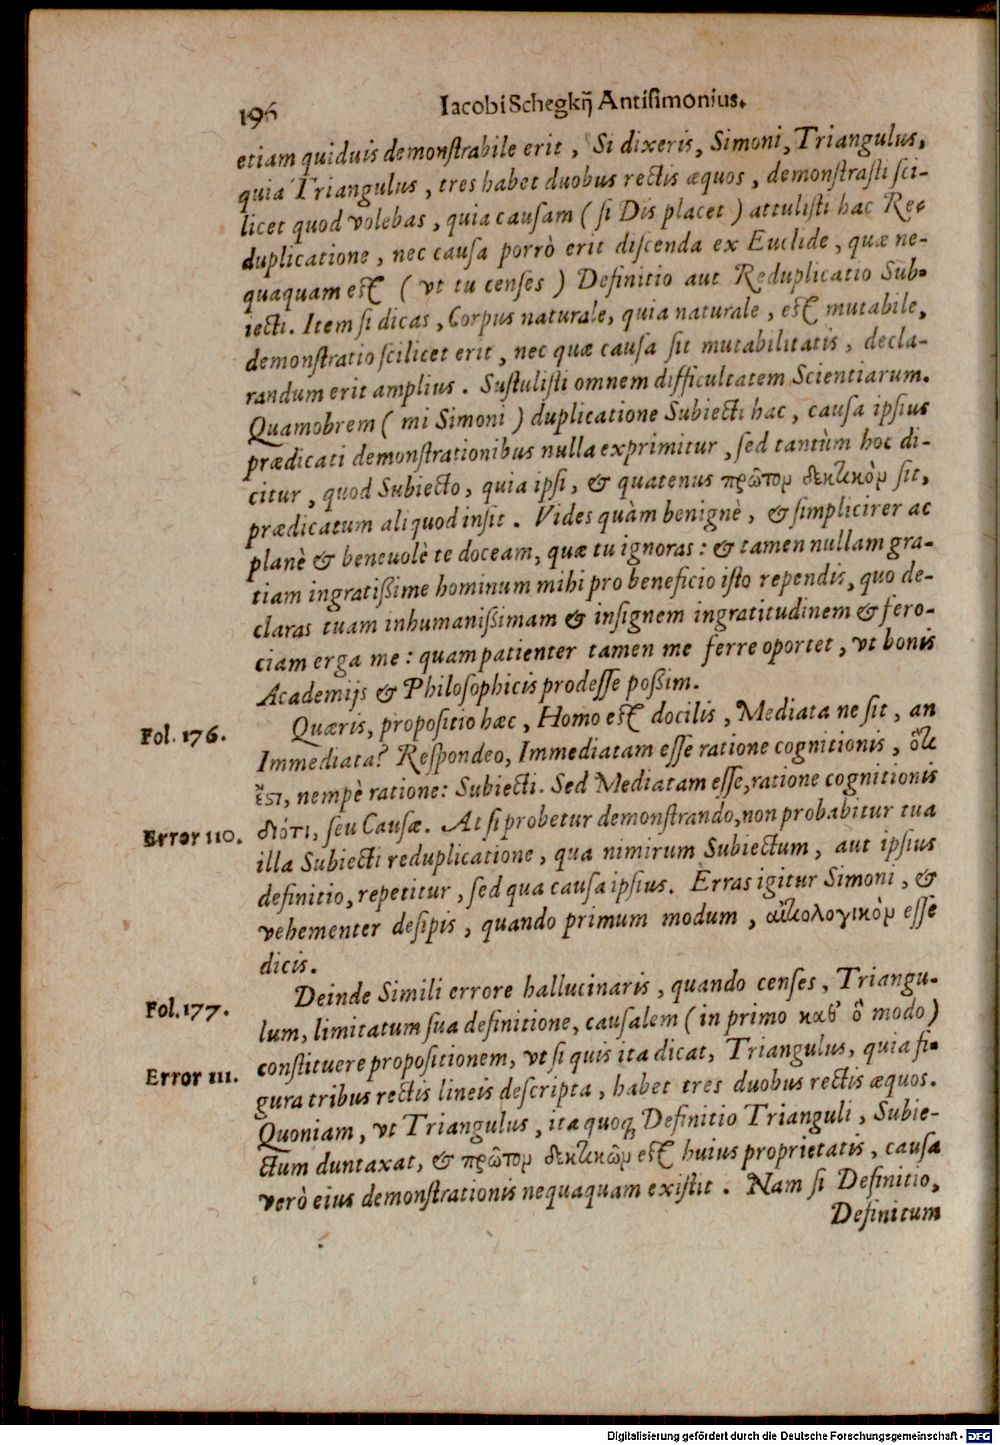 196
Iacobi Schegkij Antisimonius.
etiam quiduis demonstrabile erit, Si dixeris, Simoni, Triangulus,
quia Triangulus, tres habet duobus rectis æquos, demonstrasti sci-
licet quod volebas, quia causam (si Dis placet) attulisti hac Re-
duplicatione, nec causa porrò erit discenda ex Euclide, quæ ne-
quaquam est (vt tu censes) Definitio aut Reduplicatio Sub-
iecti. Item si dicas, Corpus naturale, quia naturale, est mutabile,
demonstratio scilicet erit, nec quæ causa sit mutabilitatis, decla-
randum erit amplius. Sustulisti omnem difficultatem Scientiarum.
Quamobrem (mi Simoni) duplicatione Subiecti hac, causa ipsius
prædicati demonstrationibus nulla exprimitur, sed tantùm hoc di-
citur, quod Subiecto, quia ipsi, & quatenus πρῶτον δεκτικὸν sit,
prædicatum aliquod insit. Vides quàm benignè, & simplicirer ac
planè & beneuolè te doceam, quæ tu ignoras: & tamen nullam gra-
tiam ingratißime hominum mihi pro beneficio isto rependis, quo de-
claras tuam inhumanißimam & insignem ingratitudinem & fero-
ciam erga me: quam patienter tamen me ferre oportet, vt bonis
Academijs & Philosophicis prodesse poßim.
Fol. 176.
Quæris, propositio hæc, Homo est docilis, Mediata ne sit, an
Immediata? Respondeo, Immediatam esse ratione cognitionis, ὅτι
ἔστι, nempè ratione: Subiecti. Sed Mediatam esse, ratione cognitionis
Error 110.
διότι, seu Causæ. At si probetur demonstrando, non probabitur tua
illa Subiecti reduplicatione, qua nimirum Subiectum, aut ipsius
definitio, repetitur, sed qua causa ipsius. Erras igitur Simoni, &
vehementer desipis, quando primum modum, αἰτιολογικὸν esse
dicis.
Fol. 177.
Deinde Simili errore hallucinaris, quando censes, Triangu-
lum, limitatum sua definitione, causalem (in primo καθ' ὃ modo)
Error 111.
constituere propositionem, vt si quis ita dicat, Triangulus, quia fi-
gura tribus rectis lineis descripta, habet tres duobus rectis æquos.
Quoniam, vt Triangulus, ita quoq; Definitio Trianguli, Subie-
ctum duntaxat, & πρῶτον δεκτικῶν est huius proprietatis, causa
verò eius demonstrationis nequaquam existit. Nam si Definitio,
Definitum
Digitalisierung gefördert durch die Deutsche Forschungsgemeinschaft - DFG